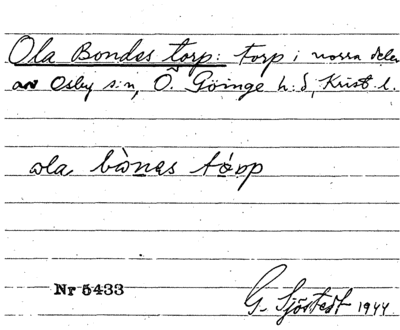 Ola Bondes torp: torp i norra delen
av Osby s:n, Ö. Göinge h:d, Krist. l.
ola bònas tópp
Nr 5433
G. Sjöstedt 1944